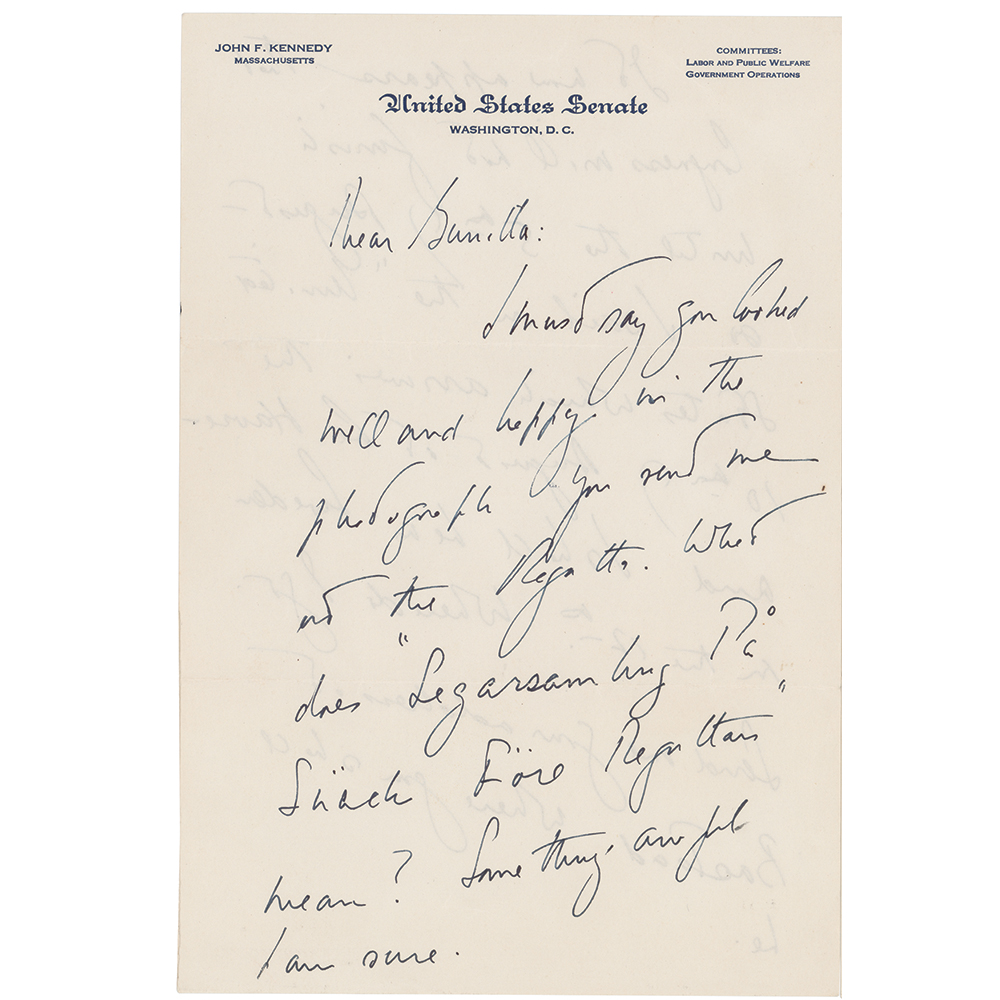 JOHN F. KENNEDY
MASSACHUSETTS
COMMITTEES:
LABOR AND PUBLIC WELFARE
GOVERNMENT OPERATIONS
United States Senate
WASHINGTON, D. C.
Dear Gunilla:
I must say you looked
well and happy in the
photograph you send me
at the Regatta. What
does "Segarsamling På
Snäck Före Regattan"
mean? Something awful
I am sure.